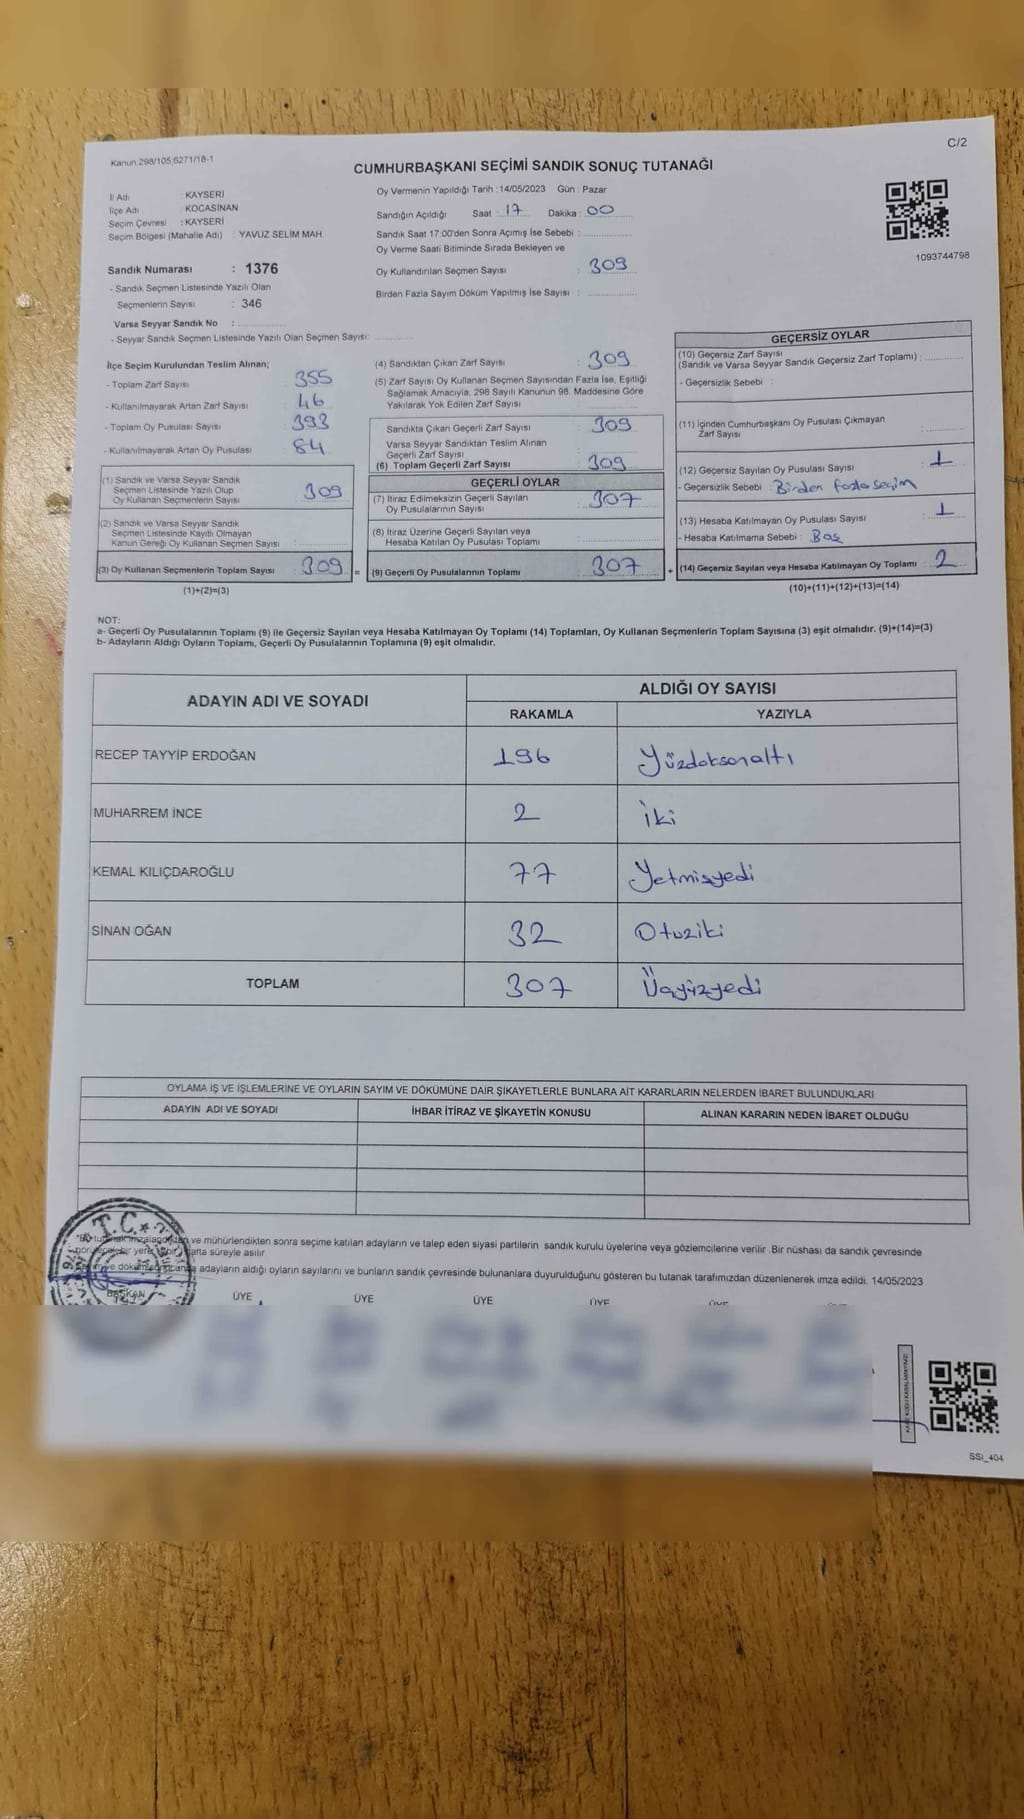 C/2
Kanun:298/105;6271/18-1
CUMHURBAŞKANI SEÇİMİ SANDIK SONUÇ TUTANAĞI
İl Adı : KAYSERİ
İlçe Adı : KOCASİNAN
Seçim Çevresi : KAYSERİ
Seçim Bölgesi (Mahalle Adı) : YAVUZ SELİM MAH.
Sandık Numarası : 1376
- Sandık Seçmen Listesinde Yazılı Olan
Seçmenlerin Sayısı : 346
Varsa Seyyar Sandık No :
- Seyyar Sandık Seçmen Listesinde Yazılı Olan Seçmen Sayısı:
Oy Vermenin Yapıldığı Tarih :14/05/2023 Gün : Pazar
Sandığın Açıldığı Saat : 17 Dakika : 00
Sandık Saat 17:00'den Sonra Açımış İse Sebebi :
Oy Verme Saati Bitiminde Sırada Bekleyen ve
Oy Kullandırılan Seçmen Sayısı : 309
Birden Fazla Sayım Döküm Yapılmış İse Sayısı :
1093744798
İlçe Seçim Kurulundan Teslim Alınan;
- Toplam Zarf Sayısı : 355
- Kullanılmayarak Artan Zarf Sayısı : 46
- Toplam Oy Pusulası Sayısı : 393
- Kullanılmayarak Artan Oy Pusulası : 84
(1) Sandık ve Varsa Seyyar Sandık
Seçmen Listesinde Yazılı Olup
Oy Kullanan Seçmenlerin Sayısı : 309
(2) Sandık ve Varsa Seyyar Sandık
Seçmen Listesinde Kayıtlı Olmayan
Kanun Gereği Oy Kullanan Seçmen Sayısı :
(3) Oy Kullanan Seçmenlerin Toplam Sayısı : 309 =
(1)+(2)=(3)
(4) Sandıktan Çıkan Zarf Sayısı : 309
(5) Zarf Sayısı Oy Kullanan Seçmen Sayısından Fazla İse, Eşitliği
Sağlamak Amacıyla, 298 Sayılı Kanunun 98. Maddesine Göre
Yakılarak Yok Edilen Zarf Sayısı :
Sandıkta Çıkan Geçerli Zarf Sayısı : 309
Varsa Seyyar Sandıktan Teslim Alınan
Geçerli Zarf Sayısı :
(6) Toplam Geçerli Zarf Sayısı : 309
GEÇERLİ OYLAR
(7) İtiraz Edilmeksizin Geçerli Sayılan
Oy Pusulalarının Sayısı : 307
(8) İtiraz Üzerine Geçerli Sayılan veya
Hesaba Katılan Oy Pusulası Toplamı :
(9) Geçerli Oy Pusulalarının Toplamı : 307 +
GEÇERSİZ OYLAR
(10) Geçersiz Zarf Sayısı
(Sandık ve Varsa Seyyar Sandık Geçersiz Zarf Toplamı) :
- Geçersizlik Sebebi :
(11) İçinden Cumhurbaşkanı Oy Pusulası Çıkmayan
Zarf Sayısı :
(12) Geçersiz Sayılan Oy Pusulası Sayısı : 1
- Geçersizlik Sebebi : Birden fazla seçim
(13) Hesaba Katılmayan Oy Pusulası Sayısı : 1
- Hesaba Katılmama Sebebi : Boş
(14) Geçersiz Sayılan veya Hesaba Katılmayan Oy Toplamı : 2
(10)+(11)+(12)+(13)=(14)
NOT:
a- Geçerli Oy Pusulalarının Toplamı (9) ile Geçersiz Sayılan veya Hesaba Katılmayan Oy Toplamı (14) Toplamları, Oy Kullanan Seçmenlerin Toplam Sayısına (3) eşit olmalıdır. (9)+(14)=(3)
b- Adayların Aldığı Oyların Toplamı, Geçerli Oy Pusulalarının Toplamına (9) eşit olmalıdır.
ADAYIN ADI VE SOYADI ALDIĞI OY SAYISI
RAKAMLA YAZIYLA
RECEP TAYYİP ERDOĞAN 196 Yüzdoksanaltı
MUHARREM İNCE 2 İki
KEMAL KILIÇDAROĞLU 77 Yetmişyedi
SİNAN OĞAN 32 Otuziki
TOPLAM 307 Üçyüzyedi
OYLAMA İŞ VE İŞLEMLERİNE VE OYLARIN SAYIM VE DÖKÜMÜNE DAİR ŞİKAYETLERLE BUNLARA AİT KARARLARIN NELERDEN İBARET BULUNDUKLARI
ADAYIN ADI VE SOYADI İHBAR İTİRAZ VE ŞİKAYETİN KONUSU ALINAN KARARIN NEDEN İBARET OLDUĞU
T.C.
ve mühürlendikten sonra seçime katılan adayların ve talep eden siyasi partilerin sandık kurulu üyelerine veya gözlemcilerine verilir .Bir nüshası da sandık çevresinde
hafta süreyle asılır.
adayların aldığı oyların sayılarını ve bunların sandık çevresinde bulunanlara duyurulduğunu gösteren bu tutanak tarafımızdan düzenlenerek imza edildi. 14/05/2023
BAŞKAN ÜYE ÜYE ÜYE ÜYE
SSI_404